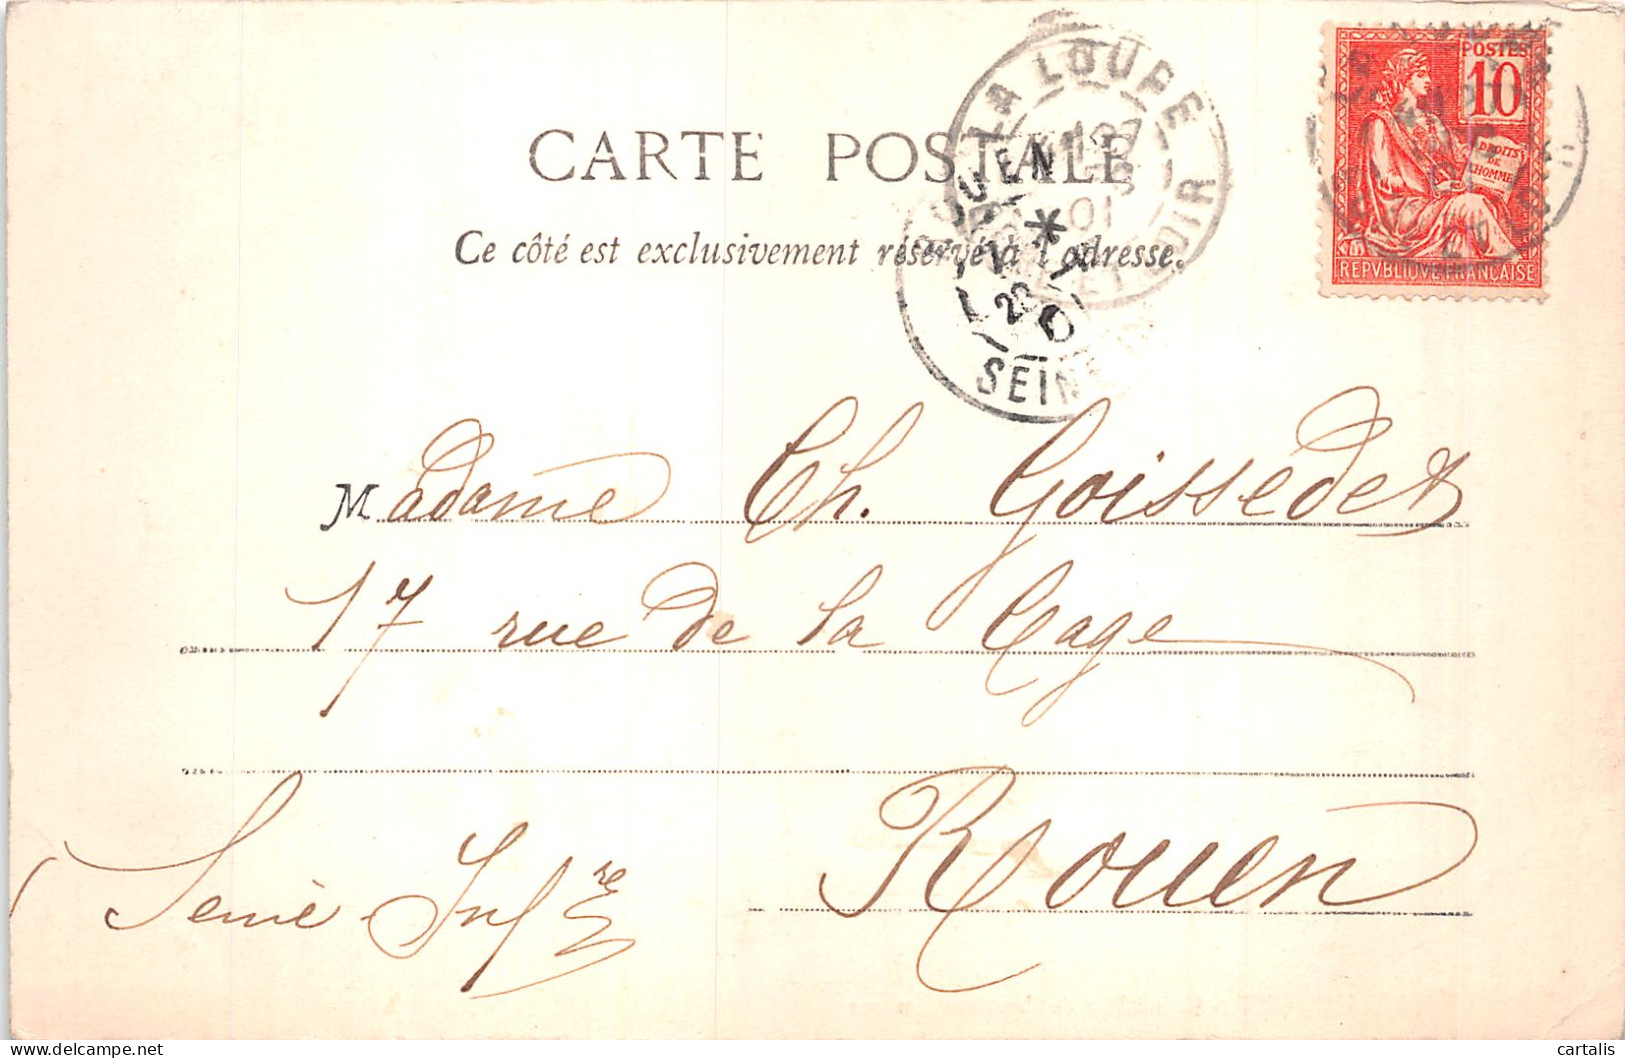 CARTE POSTALE
Ce côté est exclusivement réservé à l'adresse.
LA LOUPE
27
01
EURE-ET-LOIR
ROUEN
SEINE
POSTES
10
DROITS
DE
L'HOMME
REPVBLIQVE FRANÇAISE
Madame Ch. Goissedet
17 rue de la Cage
Rouen
Seine Infre
cartalis